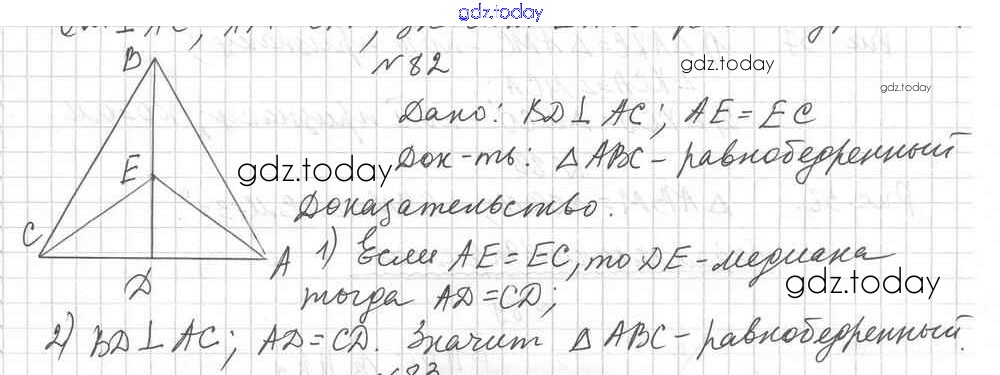 gdz.today
№ 82
gdz.today
gdz.today
B
Дано: BD⊥AC; AE=EC
Док-ть: △ABC - равнобедренный
E
gdz.today
Доказательство.
C
A
1) Если AE=EC, то DE - медиана
gdz.today
D
тогда AD=CD;
2) BD⊥AC; AD=CD. Значит △ABC - равнобедренный.
№83